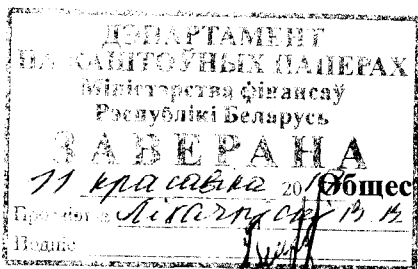 ДЭПАРТАМЕНТ
ПА КАШТОЎНЫХ ПАПЕРАХ
Міністэрства фінансаў
Рэспублікі Беларусь
ЗАВЕРАНА
11 красавіка 20
Общес
В. В.
Подпіс